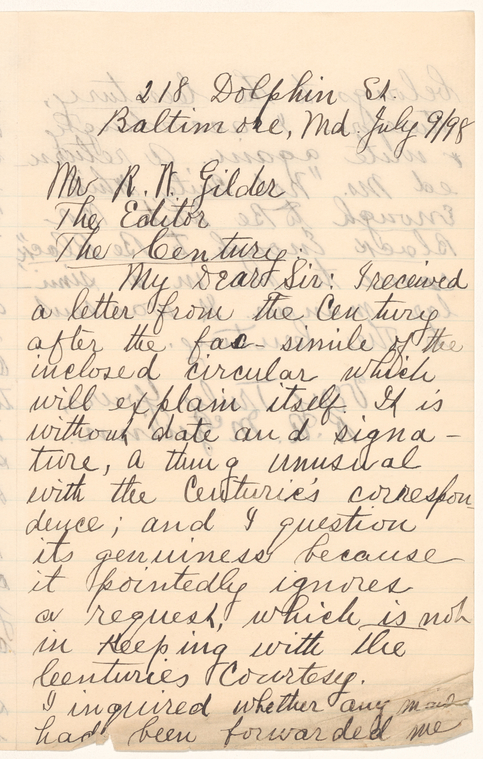 218 Dolphin St.
Baltimore, Md. July 9/98
Mr R. W. Gilder
The Editor
The Century.
My Dear Sir: I received
a letter from the Century
after the fac-simile of the
inclosed circular which
will explain itself. It is
without date and signa-
ture, a thing unusual
with the Centurie's correspon-
dence; and I question
its genuiness because
it pointedly ignores
a request, which is not
in keeping with the
Centuries Courtesy.
I inquired whether any
had been forwarded me